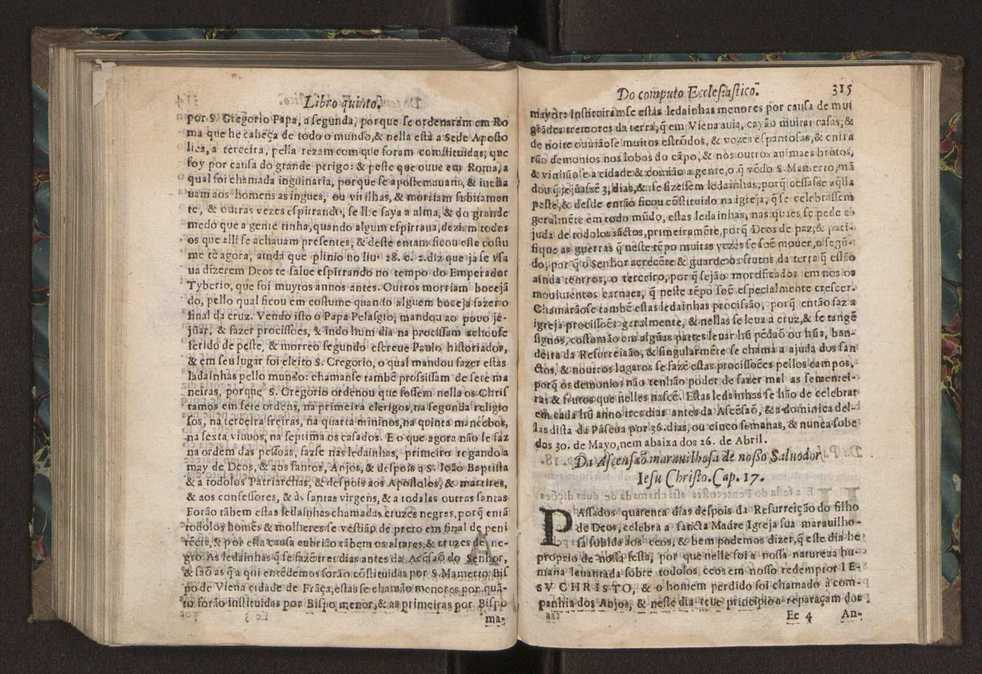 Libro quinto.
por S. Gregorio Papa, a segunda, porque se ordenaram em Ro
ma que he cabeça de todo o mundo, & nella està a Sede Aposto
lica, a terceira, pella rezam com que foram constituidas, que
foy por causa do grande perigo: & peste que ouue em Roma, a
qual foi chamada inguinaria, porque se apostemauam, & incha
uam aos homens as ingues, ou virilhas, & morriam subitamen
te, & outras vezes espirrando, se lhe saya a alma, & do grande
medo que a gente tinha, quando algum espirraua, deziam todos
os que alli se achauam presentes, & deste entam ficou este costu
me tẽ agora, ainda que plinio no liu. 28. c. 2. diz que ja se vsa
ua dizerem Deos te salue espirrando no tempo do Emperador
Tyberio, que foi muytos annos antes. Outros morriam bocejã
do, pello qual ficou em costume quando alguem boceja fazer o
sinal da cruz. Vendo isto o Papa Pelasgio, mandou ao pouo je-
juar, & fazer procissões, & indo hum dia na procissam achouse
ferido de peste, & morreo segundo escreue Paulo historiador,
& em seu lugar foi eleito S. Gregorio, o qual mandou fazer estas
ladainhas pello mundo: chamanse tambẽ prosissam de sete ma
neiras, porque S. Gregorio ordenou que fossem nella os Chris
tamos em sete ordens, na primeira clerigos, na segunda religio
sos, na terceira freiras, na quarta mininos, na quinta mancebos,
na sexta viuuos, na septima os casados. E o que agora não se faz
na ordem das pessoas, fazse nas ledainhas, primeiro regando a
may de Deos, & aos santos, Anjos, & despois a S. João Baptista
& a todolos Patriarchas, & despois aos Apostolos, & martires,
& aos confessores, & às santas virgens, & a todalas outras santas
Forão tãbem estas ledainhas chamadas cruzes negras, porq̃ entã
todolos homẽs & molheres se vestião de preto em sinal de peni
tẽcia, & por esta causa cubrião tãbem os altares, & cruzes de ne-
gro. As ledainhas q̃ se fazẽ tres dias antes da Ascẽsaõ do Senhor,
& saõ as q̃ a qui entẽdemos forão cõstituidas por S. Mamerto Bis
po de Viena cidade de Frãça, estas se chamão menores, por quã-
to forão instituidas por Bispo menor, & as primeiras por Bispo
ma-
Do computo Ecclesiastico. 315
mayor. Instituiramse estas ledainhas menores por causa de mui
grãdes tremores da terra, q̃ em Viena auia, cayão muitas casas, &
de noite ouuiãose muitos estrõdos, & vozes espantosas, & entra
rão demonios nos lobos do cãpo, & nos outros animaes brutos,
& vinhãose a cidade & comião a gente, o q̃ vẽdo S. Mamerto, mã
dou q̃ jejũasẽ 3. dias, & se fizessem ledainhas, porq̃ cessasse aq̃lla
peste, & desde então ficou cõstituido na igreja, q̃ se celebrassem
geralmẽte em todo mũdo, estas ledainhas, nas ques se pede a-
juda de todolos sãctos, primeiramẽte, porq̃ Deos de paz, & paci-
fique as guerras q̃ neste tẽpo muitas vezes se soẽ mouer, o segũ-
do, por q̃ o Senhor acrecẽte & guarde os frutos da terra q̃ estão
ainda tenrros, o terceiro, por q̃ sejão mortificados em nos os
mouiuentos carnaes, q̃ neste tẽpo soẽ especialmente crescer.
Chamarãose tambẽ estas ledainhas procissão, porq̃ então faz a
igreja procissões geralmente, & nellas se leua a cruz, & se tangẽ
signos, costumão em algũas partes leuar hũ pẽdão ou hũa, ban-
deira da Resurreisão, & singularmẽte se chama a ajuda dos san
ctos, & noutros lugares se fazẽ estas procissões pellos campos,
porq̃ os demonios não tenhão poder de fazer mal as sementei-
ras & frutos que nelles nascẽ. Estas ledainhas se hão de celebrar
em cada hũ anno tres dias antes da Ascẽsão, & a dominica del-
las dista da Pascua por 36. dias, ou cinco semanas, & nunca sobe
dos 30. de Mayo, nem abaixa dos 26. de Abril.
Da Ascensaõ marauilhosa de nosso Saluodor
Iesu Christo. Cap. 17.
PAssados quarenta dias despois da Resurreição do filho
de Deos, celebra a sancta Madre Igreja sua marauilho-
sa sobida aos ceos, & bem podemos dizer, q̃ este dia he
propeio de nossa festa, por que nelle foi a nossa natureza hu-
mana leuantada sobre todolos ceos em nosso redemptor IE
SV CHRISTO, & o homem perdido foi chamado à com-
panhia dos Anjos, & neste dia teue principio a reparaçam dos
Ee 4 An-